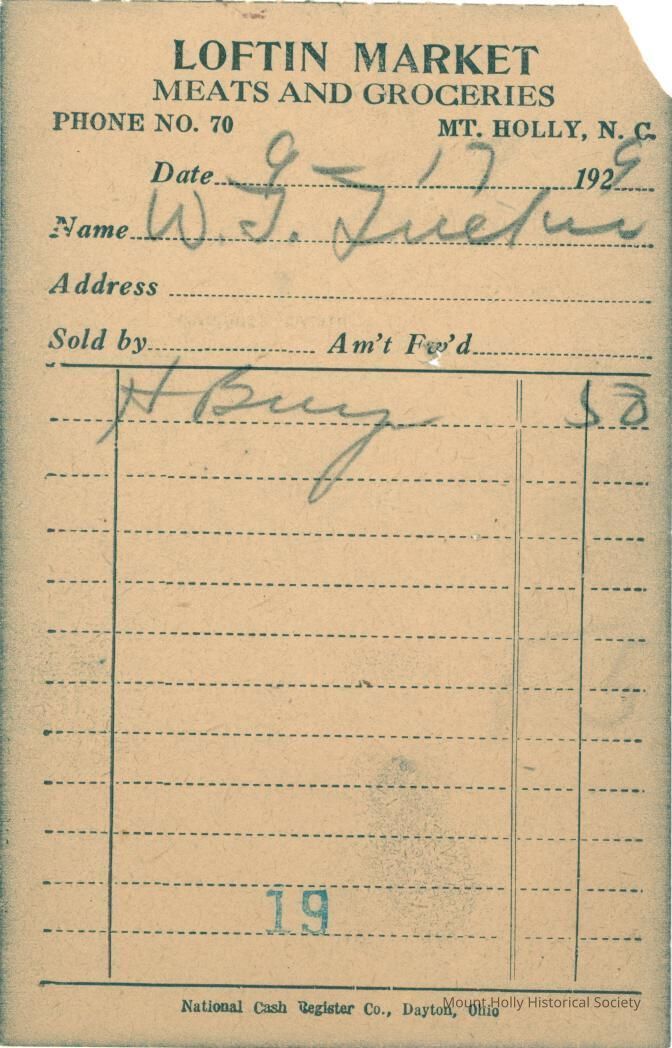 LOFTIN MARKET
MEATS AND GROCERIES
PHONE NO. 70 MT. HOLLY, N. C.
Date 9-17 1929
Name W. T.
Address
Sold by Am't Fw'd
H
19
National Cash Register Co., Dayton, Ohio
Mount Holly Historical Society